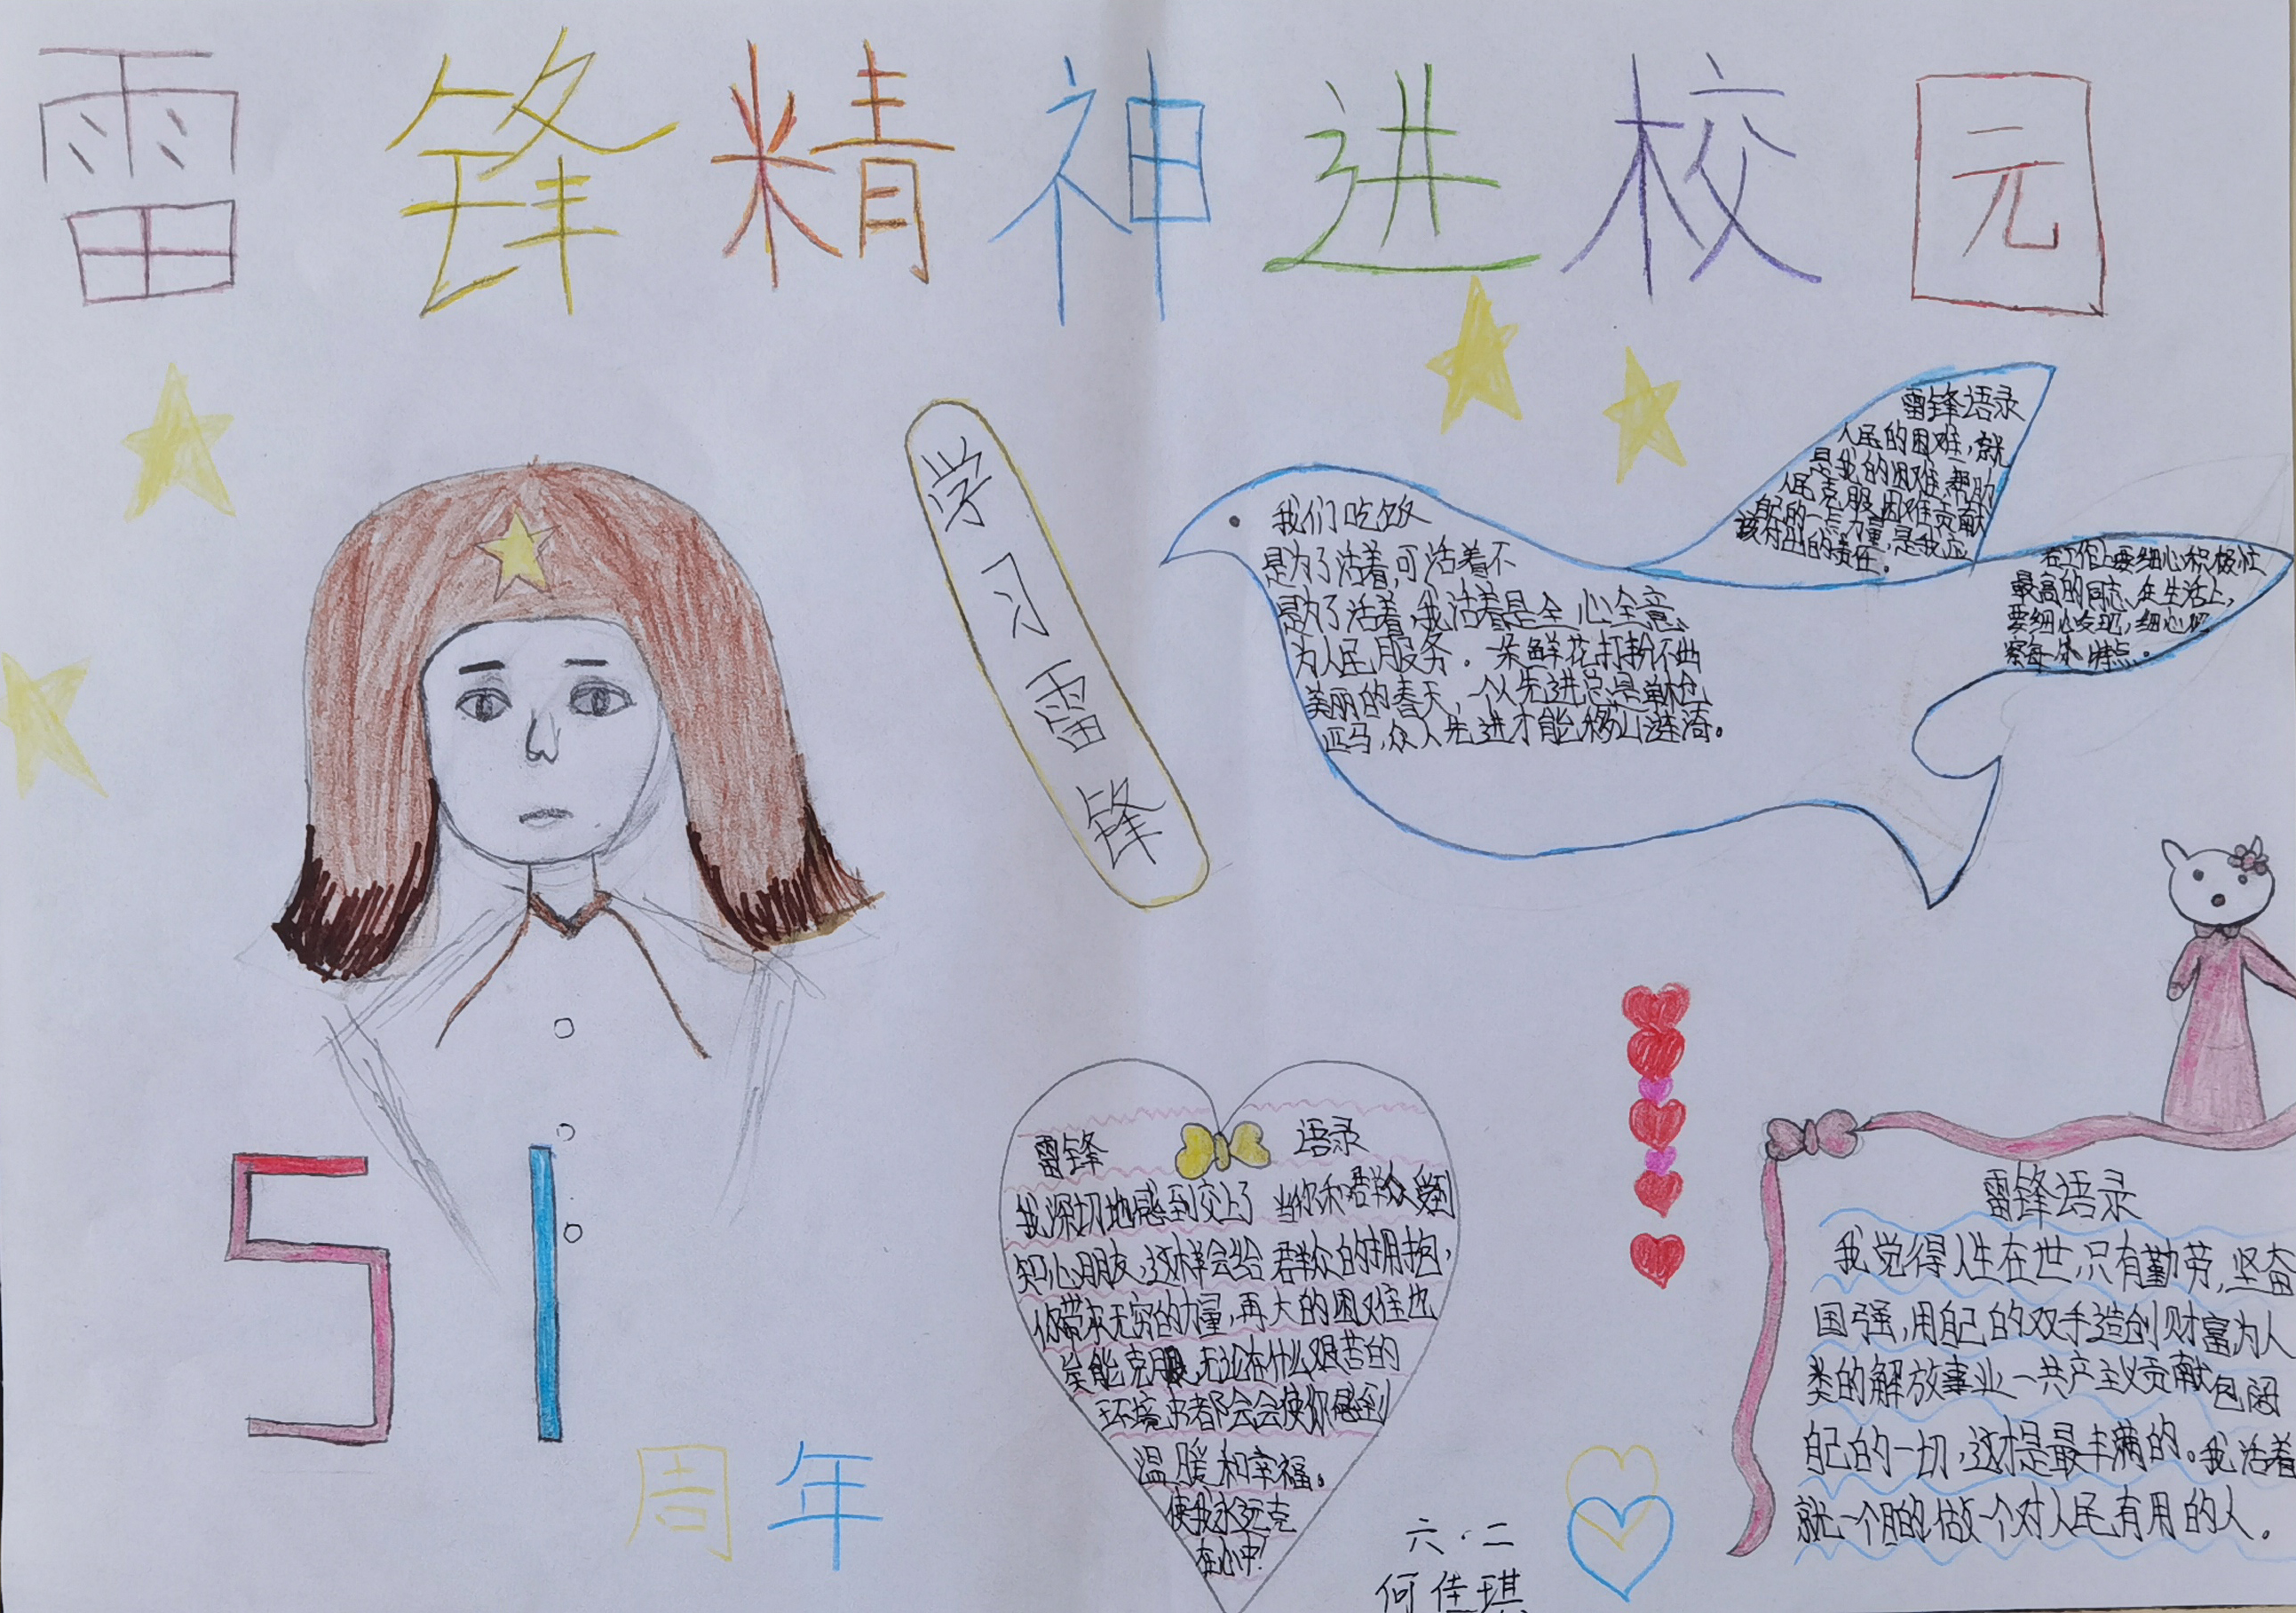 雷锋精神进校园
学习雷锋
我们吃饭
是为了活着,可活着不
是为了活着,我活着是全心全意
为人民服务。一朵鲜花打扮不出
美丽的春天,一个人先进总是单枪
匹马,众人先进才能移山
雷锋语录
人民的困难,就
是我的困难,帮助
人民克服困难贡献
自己的一点力量,是我应
该付出的责任。
在工作上要细心积极性
最高的同志,在生活上,
要细心发现,细心观
察每一处特点。
51
周年
雷锋 语录
我深切地感到交上了 当你和群众
知心朋友,这样会给群众的拥抱,
你带来无穷的力量,再大的困难也
能克服,无论在什么艰苦的
环境中都会会使你感到
温暖和幸福。
使我永远克
在心中!
雷锋语录
我觉得人生在世,只有勤劳,坚奋
国强,用自己的双手造创财富为人
类的解放事业一共产主义贡献
自己的一切,这才是最丰满的。我活着
就一个目的,做一个对人民有用的人。
六·二
何佳琪